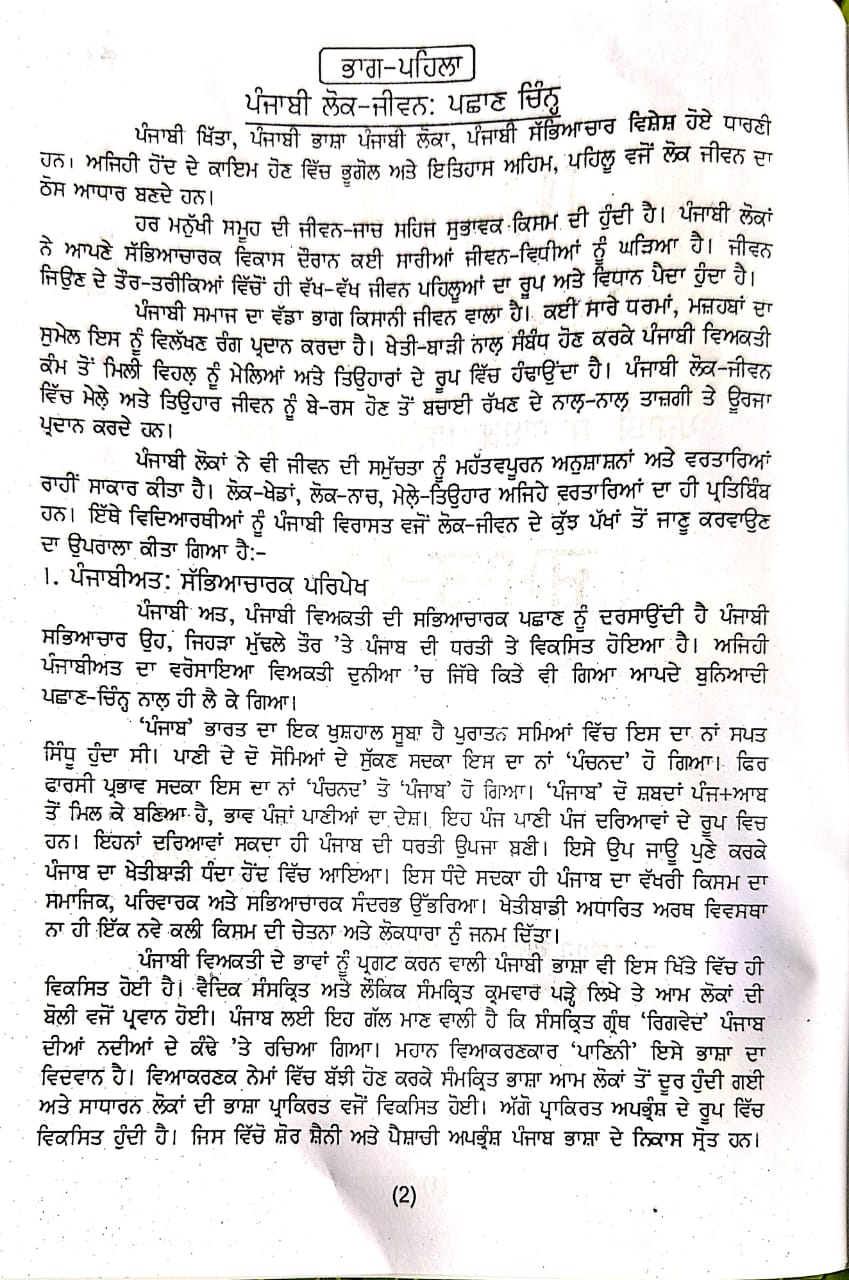 ਭਾਗ-ਪਹਿਲਾ
ਪੰਜਾਬੀ ਲੋਕ-ਜੀਵਨ: ਪਛਾਣ ਚਿੰਨ੍ਹ
ਪੰਜਾਬੀ ਖਿੱਤਾ, ਪੰਜਾਬੀ ਭਾਸ਼ਾ ਪੰਜਾਬੀ ਲੋਕਾ, ਪੰਜਾਬੀ ਸੱਭਿਆਚਾਰ ਵਿਸ਼ੇਸ਼ ਹੋਏ ਧਾਰਣੀ
ਹਨ। ਅਜਿਹੀ ਹੋਂਦ ਦੇ ਕਾਇਮ ਹੋਣ ਵਿੱਚ ਭੂਗੋਲ ਅਤੇ ਇਤਿਹਾਸ ਅਹਿਮ, ਪਹਿਲੂ ਵਜੋਂ ਲੋਕ ਜੀਵਨ ਦਾ
ਠੋਸ ਆਧਾਰ ਬਣਦੇ ਹਨ।
ਹਰ ਮਨੁੱਖੀ ਸਮੂਹ ਦੀ ਜੀਵਨ-ਜਾਚ ਸਹਿਜ ਸੁਭਾਵਕ ਕਿਸਮ ਦੀ ਹੁੰਦੀ ਹੈ। ਪੰਜਾਬੀ ਲੋਕਾਂ
ਨੇ ਆਪਣੇ ਸੱਭਿਆਚਾਰਕ ਵਿਕਾਸ ਦੌਰਾਨ ਕਈ ਸਾਰੀਆਂ ਜੀਵਨ-ਵਿਧੀਆਂ ਨੂੰ ਘੜਿਆ ਹੈ। ਜੀਵਨ
ਜਿਉਣ ਦੇ ਤੌਰ-ਤਰੀਕਿਆਂ ਵਿੱਚੋਂ ਹੀ ਵੱਖ-ਵੱਖ ਜੀਵਨ ਪਹਿਲੂਆਂ ਦਾ ਰੂਪ ਅਤੇ ਵਿਧਾਨ ਪੈਦਾ ਹੁੰਦਾ ਹੈ।
ਪੰਜਾਬੀ ਸਮਾਜ ਦਾ ਵੱਡਾ ਭਾਗ ਕਿਸਾਨੀ ਜੀਵਨ ਵਾਲਾ ਹੈ। ਕਈ ਸਾਰੇ ਧਰਮਾਂ, ਮਜ਼ਹਬਾਂ ਦਾ
ਸੁਮੇਲ ਇਸ ਨੂੰ ਵਿਲੱਖਣ ਰੰਗ ਪ੍ਰਦਾਨ ਕਰਦਾ ਹੈ। ਖੇਤੀ-ਬਾੜੀ ਨਾਲ਼ ਸੰਬੰਧ ਹੋਣ ਕਰਕੇ ਪੰਜਾਬੀ ਵਿਅਕਤੀ
ਕੰਮ ਤੋਂ ਮਿਲੀ ਵਿਹਲ ਨੂੰ ਮੇਲਿਆਂ ਅਤੇ ਤਿਉਹਾਰਾਂ ਦੇ ਰੂਪ ਵਿੱਚ ਹੰਢਾਉਂਦਾ ਹੈ। ਪੰਜਾਬੀ ਲੋਕ-ਜੀਵਨ
ਵਿੱਚ ਮੇਲ਼ੇ ਅਤੇ ਤਿਉਹਾਰ ਜੀਵਨ ਨੂੰ ਬੇ-ਰਸ ਹੋਣ ਤੋਂ ਬਚਾਈ ਰੱਖਣ ਦੇ ਨਾਲ਼-ਨਾਲ਼ ਤਾਜ਼ਗੀ ਤੇ ਊਰਜਾ
ਪ੍ਰਦਾਨ ਕਰਦੇ ਹਨ।
ਪੰਜਾਬੀ ਲੋਕਾਂ ਨੇ ਵੀ ਜੀਵਨ ਦੀ ਸਮੁੱਚਤਾ ਨੂੰ ਮਹੱਤਵਪੂਰਨ ਅਨੁਸ਼ਾਸ਼ਨਾਂ ਅਤੇ ਵਰਤਾਰਿਆਂ
ਰਾਹੀਂ ਸਾਕਾਰ ਕੀਤਾ ਹੈ। ਲੋਕ-ਖੇਡਾਂ, ਲੋਕ-ਨਾਚ, ਮੇਲ਼ੇ-ਤਿਉਹਾਰ ਅਜਿਹੇ ਵਰਤਾਰਿਆਂ ਦਾ ਹੀ ਪ੍ਰਤਿਬਿੰਬ
ਹਨ। ਇੱਥੇ ਵਿਦਿਆਰਥੀਆਂ ਨੂੰ ਪੰਜਾਬੀ ਵਿਰਾਸਤ ਵਜੋਂ ਲੋਕ-ਜੀਵਨ ਦੇ ਕੁੱਝ ਪੱਖਾਂ ਤੋਂ ਜਾਣੂ ਕਰਵਾਉਣ
ਦਾ ਉਪਰਾਲਾ ਕੀਤਾ ਗਿਆ ਹੈ:-
1. ਪੰਜਾਬੀਅਤ: ਸੱਭਿਆਚਾਰਕ ਪਰਿਪੇਖ
ਪੰਜਾਬੀ ਅਤ, ਪੰਜਾਬੀ ਵਿਅਕਤੀ ਦੀ ਸਭਿਆਚਾਰਕ ਪਛਾਣ ਨੂੰ ਦਰਸਾਉਂਦੀ ਹੈ ਪੰਜਾਬੀ
ਸਭਿਆਚਾਰ ਉਹ, ਜਿਹੜਾ ਮੁੱਢਲੇ ਤੌਰ 'ਤੇ ਪੰਜਾਬ ਦੀ ਧਰਤੀ ਤੇ ਵਿਕਸਿਤ ਹੋਇਆ ਹੈ। ਅਜਿਹੀ
ਪੰਜਾਬੀਅਤ ਦਾ ਵਰੋਸਾਇਆ ਵਿਅਕਤੀ ਦੁਨੀਆ 'ਚ ਜਿੱਥੇ ਕਿਤੇ ਵੀ ਗਿਆ ਆਪਦੇ ਬੁਨਿਆਦੀ
ਪਛਾਣ-ਚਿੰਨ੍ਹ ਨਾਲ਼ ਹੀ ਲੈ ਕੇ ਗਿਆ।
'ਪੰਜਾਬ' ਭਾਰਤ ਦਾ ਇਕ ਖੁਸ਼ਹਾਲ ਸੂਬਾ ਹੈ ਪੁਰਾਤਨ ਸਮਿਆਂ ਵਿੱਚ ਇਸ ਦਾ ਨਾਂ ਸਪਤ
ਸਿੰਧੂ ਹੁੰਦਾ ਸੀ। ਪਾਣੀ ਦੇ ਦੋ ਸੋਮਿਆਂ ਦੇ ਸੁੱਕਣ ਸਦਕਾ ਇਸ ਦਾ ਨਾਂ 'ਪੰਚਨਦ' ਹੋ ਗਿਆ। ਫਿਰ
ਫਾਰਸੀ ਪ੍ਰਭਾਵ ਸਦਕਾ ਇਸ ਦਾ ਨਾਂ 'ਪੰਚਨਦ' ਤੋ 'ਪੰਜਾਬ' ਹੋ ਗਿਆ। 'ਪੰਜਾਬ' ਦੋ ਸ਼ਬਦਾਂ ਪੰਜ+ਆਬ
ਤੋਂ ਮਿਲ ਕੇ ਬਣਿਆ ਹੈ, ਭਾਵ ਪੰਜਾਂ ਪਾਣੀਆਂ ਦਾ ਦੇਸ਼। ਇਹ ਪੰਜ ਪਾਣੀ ਪੰਜ ਦਰਿਆਵਾਂ ਦੇ ਰੂਪ ਵਿਚ
ਹਨ। ਇਹਨਾਂ ਦਰਿਆਵਾਂ ਸਕਦਾ ਹੀ ਪੰਜਾਬ ਦੀ ਧਰਤੀ ਉਪਜਾ ਬਣੀ। ਇਸੇ ਉਪ ਜਾਊ ਪੁਣੇ ਕਰਕੇ
ਪੰਜਾਬ ਦਾ ਖੇਤੀਬਾੜੀ ਧੰਦਾ ਹੋਂਦ ਵਿੱਚ ਆਇਆ। ਇਸ ਧੰਦੇ ਸਦਕਾ ਹੀ ਪੰਜਾਬ ਦਾ ਵੱਖਰੀ ਕਿਸਮ ਦਾ
ਸਮਾਜਿਕ, ਪਰਿਵਾਰਕ ਅਤੇ ਸਭਿਆਚਾਰਕ ਸੰਦਰਭ ਉੱਭਰਿਆ। ਖੇਤੀਬਾਡੀ ਅਧਾਰਿਤ ਅਰਥ ਵਿਵਸਥਾ
ਨਾ ਹੀ ਇੱਕ ਨਵੇ ਕਲੀ ਕਿਸਮ ਦੀ ਚੇਤਨਾ ਅਤੇ ਲੋਕਧਾਰਾ ਨੂੰ ਜਨਮ ਦਿੱਤਾ।
ਪੰਜਾਬੀ ਵਿਅਕਤੀ ਦੇ ਭਾਵਾਂ ਨੂੰ ਪ੍ਰਗਟ ਕਰਨ ਵਾਲੀ ਪੰਜਾਬੀ ਭਾਸ਼ਾ ਵੀ ਇਸ ਖਿੱਤੇ ਵਿੱਚ ਹੀ
ਵਿਕਸਿਤ ਹੋਈ ਹੈ। ਵੈਦਿਕ ਸੰਸਕ੍ਰਿਤ ਅਤੇ ਲੌਕਿਕ ਸੰਮਕ੍ਰਿਤ ਕ੍ਰਮਵਾਰ ਪੜ੍ਹੇ ਲਿਖੇ ਤੇ ਆਮ ਲੋਕਾਂ ਦੀ
ਬੋਲੀ ਵਜੋਂ ਪ੍ਰਵਾਨ ਹੋਈ। ਪੰਜਾਬ ਲਈ ਇਹ ਗੱਲ ਮਾਣ ਵਾਲੀ ਹੈ ਕਿ ਸੰਸਕ੍ਰਿਤ ਗ੍ਰੰਥ 'ਰਿਗਵੇਦ' ਪੰਜਾਬ
ਦੀਆਂ ਨਦੀਆਂ ਦੇ ਕੰਢੇ 'ਤੇ ਰਚਿਆ ਗਿਆ। ਮਹਾਨ ਵਿਆਕਰਣਕਾਰ 'ਪਾਣਿਨੀ' ਇਸੇ ਭਾਸ਼ਾ ਦਾ
ਵਿਦਵਾਨ ਹੈ। ਵਿਆਕਰਣਕ ਨੇਮਾਂ ਵਿੱਚ ਬੱਝੀ ਹੋਣ ਕਰਕੇ ਸੰਮਕ੍ਰਿਤ ਭਾਸ਼ਾ ਆਮ ਲੋਕਾਂ ਤੋਂ ਦੂਰ ਹੁੰਦੀ ਗਈ
ਅਤੇ ਸਾਧਾਰਨ ਲੋਕਾਂ ਦੀ ਭਾਸ਼ਾ ਪ੍ਰਾਕਿਰਤ ਵਜੋਂ ਵਿਕਸਿਤ ਹੋਈ। ਅੱਗੋ ਪ੍ਰਾਕਿਰਤ ਅਪਭ੍ਰੰਸ਼ ਦੇ ਰੂਪ ਵਿੱਚ
ਵਿਕਸਿਤ ਹੁੰਦੀ ਹੈ। ਜਿਸ ਵਿੱਚੋ ਸ਼ੋਰ ਸ਼ੈਨੀ ਅਤੇ ਪੈਸ਼ਾਚੀ ਅਪਭ੍ਰੰਸ਼ ਪੰਜਾਬ ਭਾਸ਼ਾ ਦੇ ਨਿਕਾਸ ਸ੍ਰੋਤ ਹਨ।
(2)